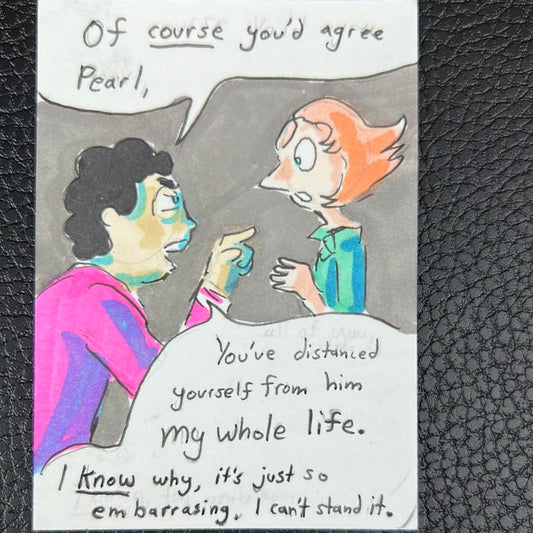 Of course you'd agree
Pearl,
You've distanced
yourself from him
my whole life.
I Know why, it's just so
embarrasing, I can't stand it.